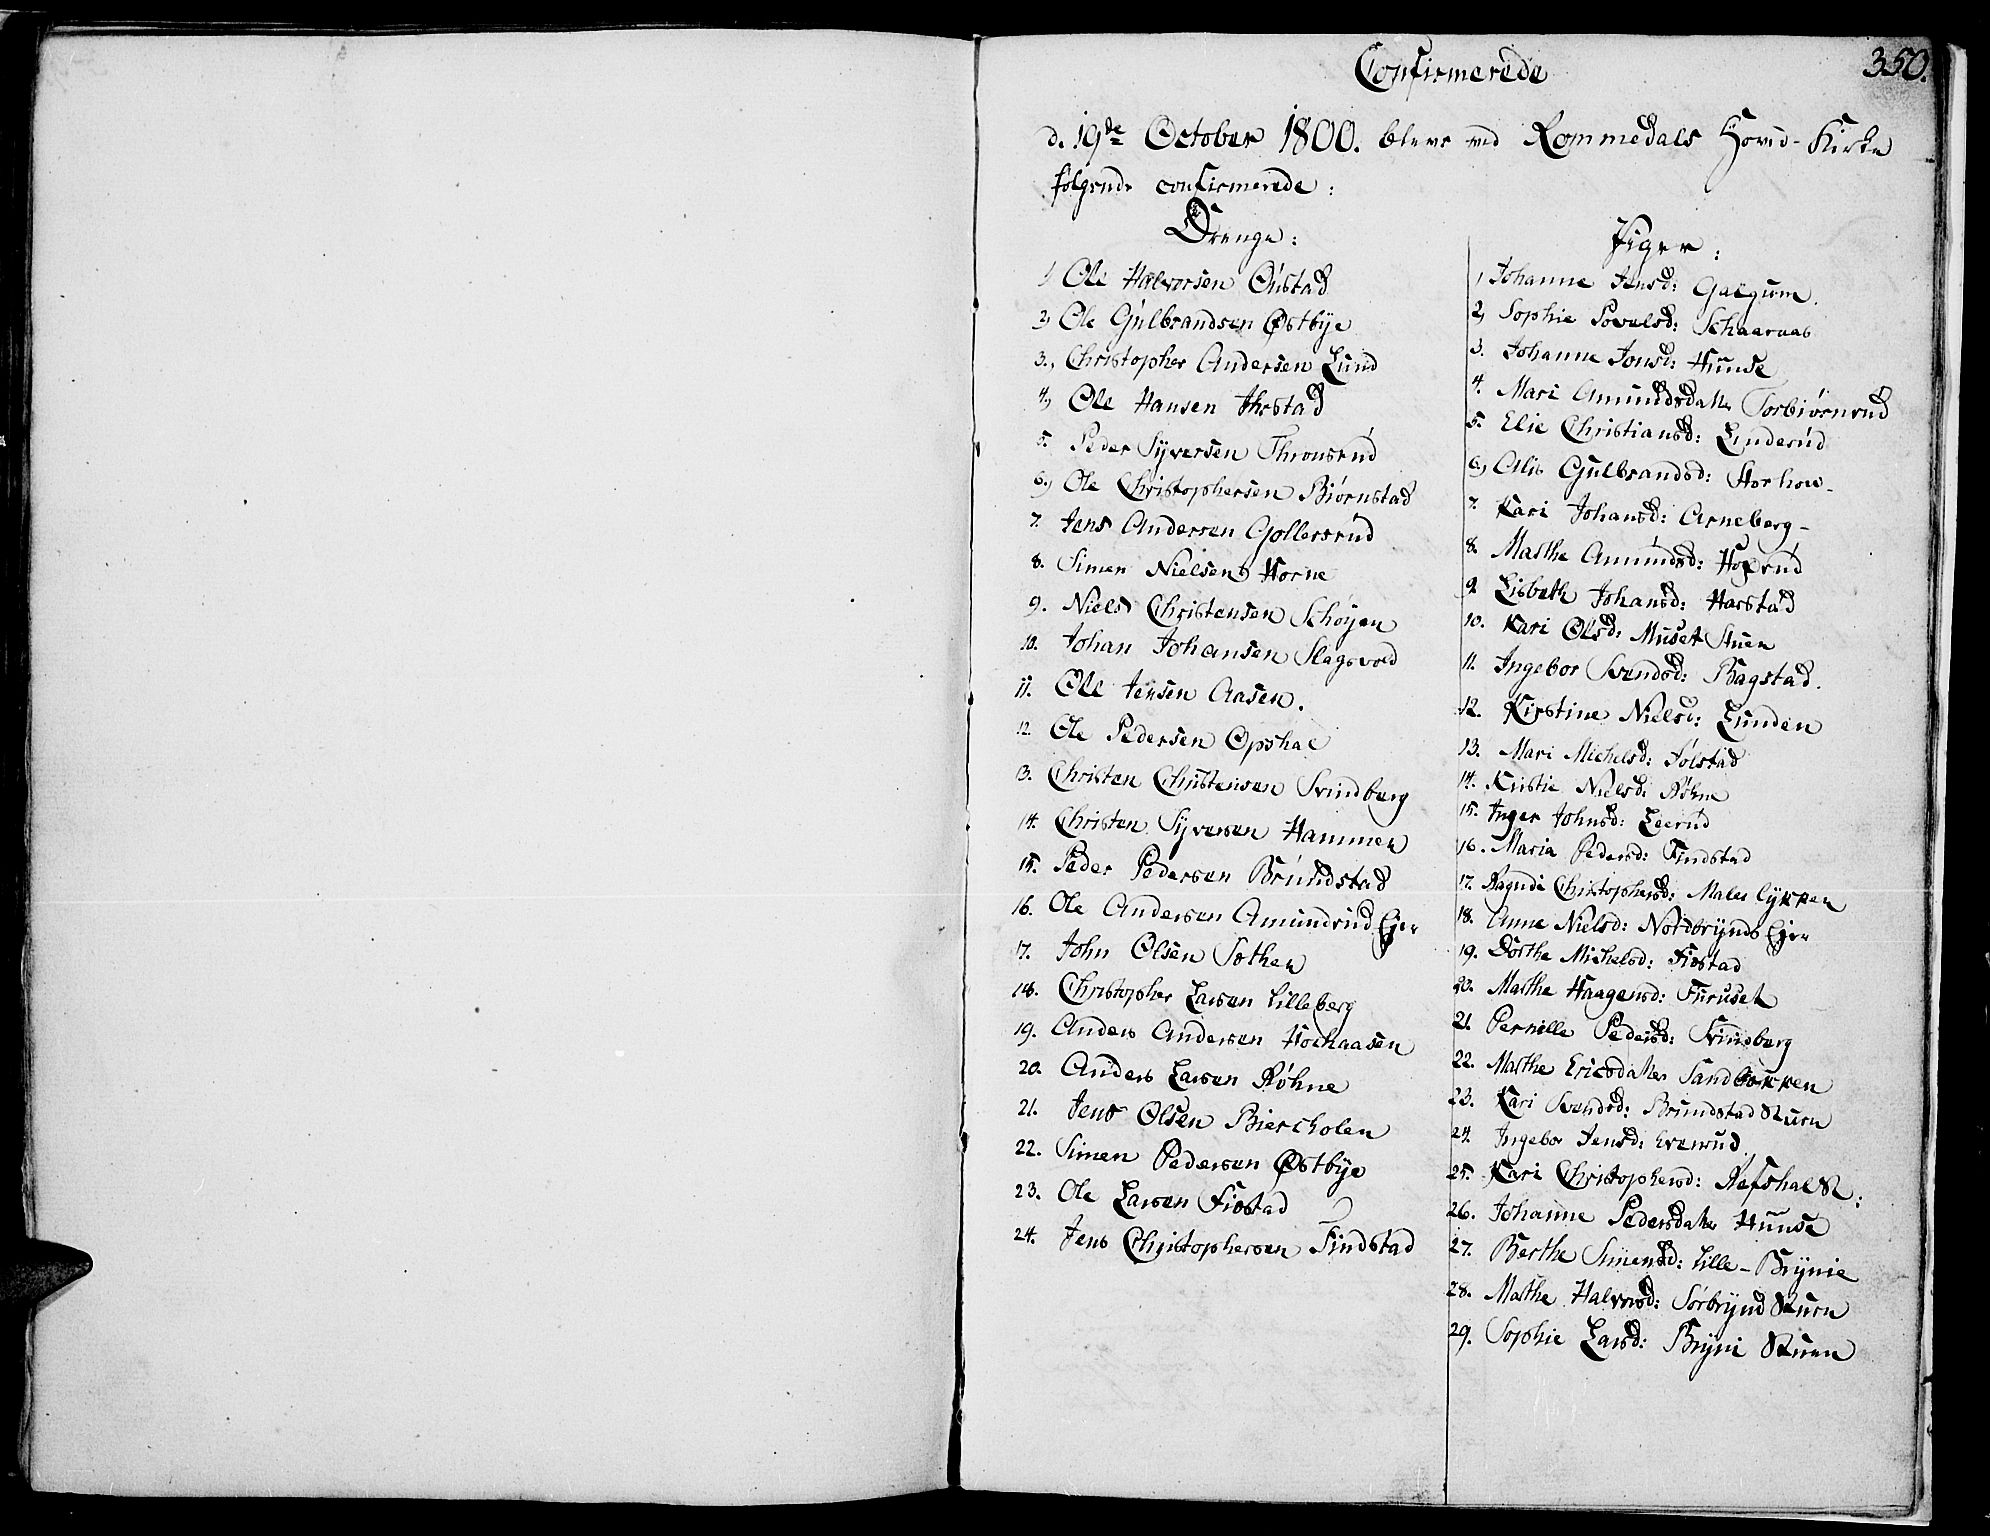 Confirmerede
350.
d. 19de October 1800. bleve ved Rommedals Hoved-Kirke
følgende confirmerede:
Drenge:
1) Ole Halvorsen Ønstad
2) Ole Gulbrandsen Østbye
3., Christopher Andersen Lund
4) Ole Hansen Ihrstad
5. Peder Syversen Thronsrud
6.) Ole Christophersen Biørnstad
7. Jens Andersen Gollersrud
8. Simen Nielsen Horne
9. Niels Christensen Schøyen
10. Johan Johansen Slagsvold
11. Ole Jensen Aasen.
12. Ole Pedersen Opshal
13. Christen Christensen Svindberg
14. Christen Syversen Hammer
15. Peder Pedersen Brundstad
16. Ole Andersen Amundrud Ejer
17. John Olsen Sæther
18. Christopher Larsen Lilleberg
19. Anders Andersen Hochaasen
20. Anders Larsen Røhne
21. Jens Olsen Biercholen
22. Simen Pedersen Østbye
23. Ole Larsen Fiøstad
24. Jens Christophersen Findstad
Piger:
1) Johanne Jensd: Galgum.
2) Sophie Povelsd: Schaaraas
3. Johanne Jonsd: Hunse
4. Mari Amundsdatter Torbiørnrud
5. Elie Christiansd: Linderud
6) Olia Gulbrandsd: Storhow-
7. Kari Johansd: Arneberg-
8. Marthe Amundsd: Hoxrud
9. Lisbeth Johansd: Harstad
10. Kari Olsd: Muset Stuen
11. Ingebor Svendsd: Bagstad.
12. Kirstine Nielsd: Lunden
13. Mari Michelsd: Jølstad
14. Kristie Nielsd: Røhne
15. Inger Johnsd: Leerud
16. Maria Pedersd: Findstad
17. Ragnde Christophersd: Males Lykken
18. Anne Nielsd: Nordbrynds Ejer
19. Dorthe Michelsd: Fiøstad
20. Marthe Haagensd: Furuset
21. Pernille Pedersd: Svindberg
22. Marthe Ericsdatter Sandbækken
23. Kari Svendsd: Brundstad Stuen
24. Ingebor Jensd: Evenrud.
25. Kari Christophersd: Refshal St:
26. Johanne Pedersdatter Hunse
27. Berthe Simensd: Lille-Brynie
28. Marthe Halvorsd: Sørbrynd Stuen
29. Sophie Larsd: Bryni Stuen